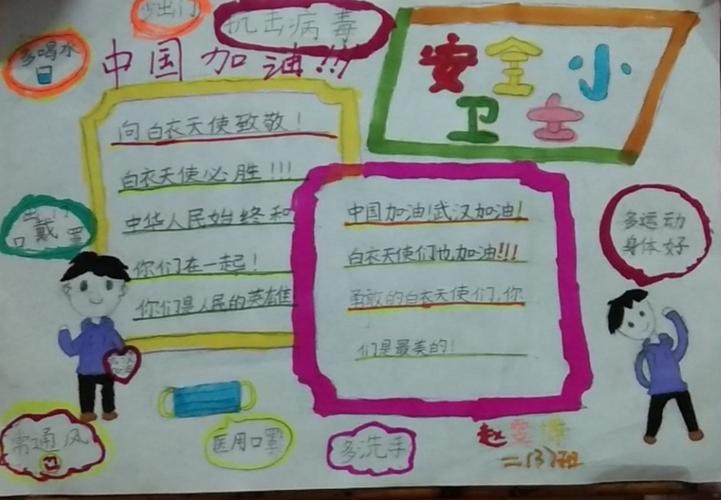 少出门
抗击病毒
多喝水
中国加油!!!
安全小
卫士
向白衣天使致敬！
白衣天使必胜!!!
中华人民始终和
你们在一起！
你们是人民的英雄
中国加油!武汉加油!
白衣天使们也加油!!!
勇敢的白衣天使们,你
们是最美的!
出门
戴口罩
多运动
身体好
常通风
医用口罩
多洗手
二(3)班